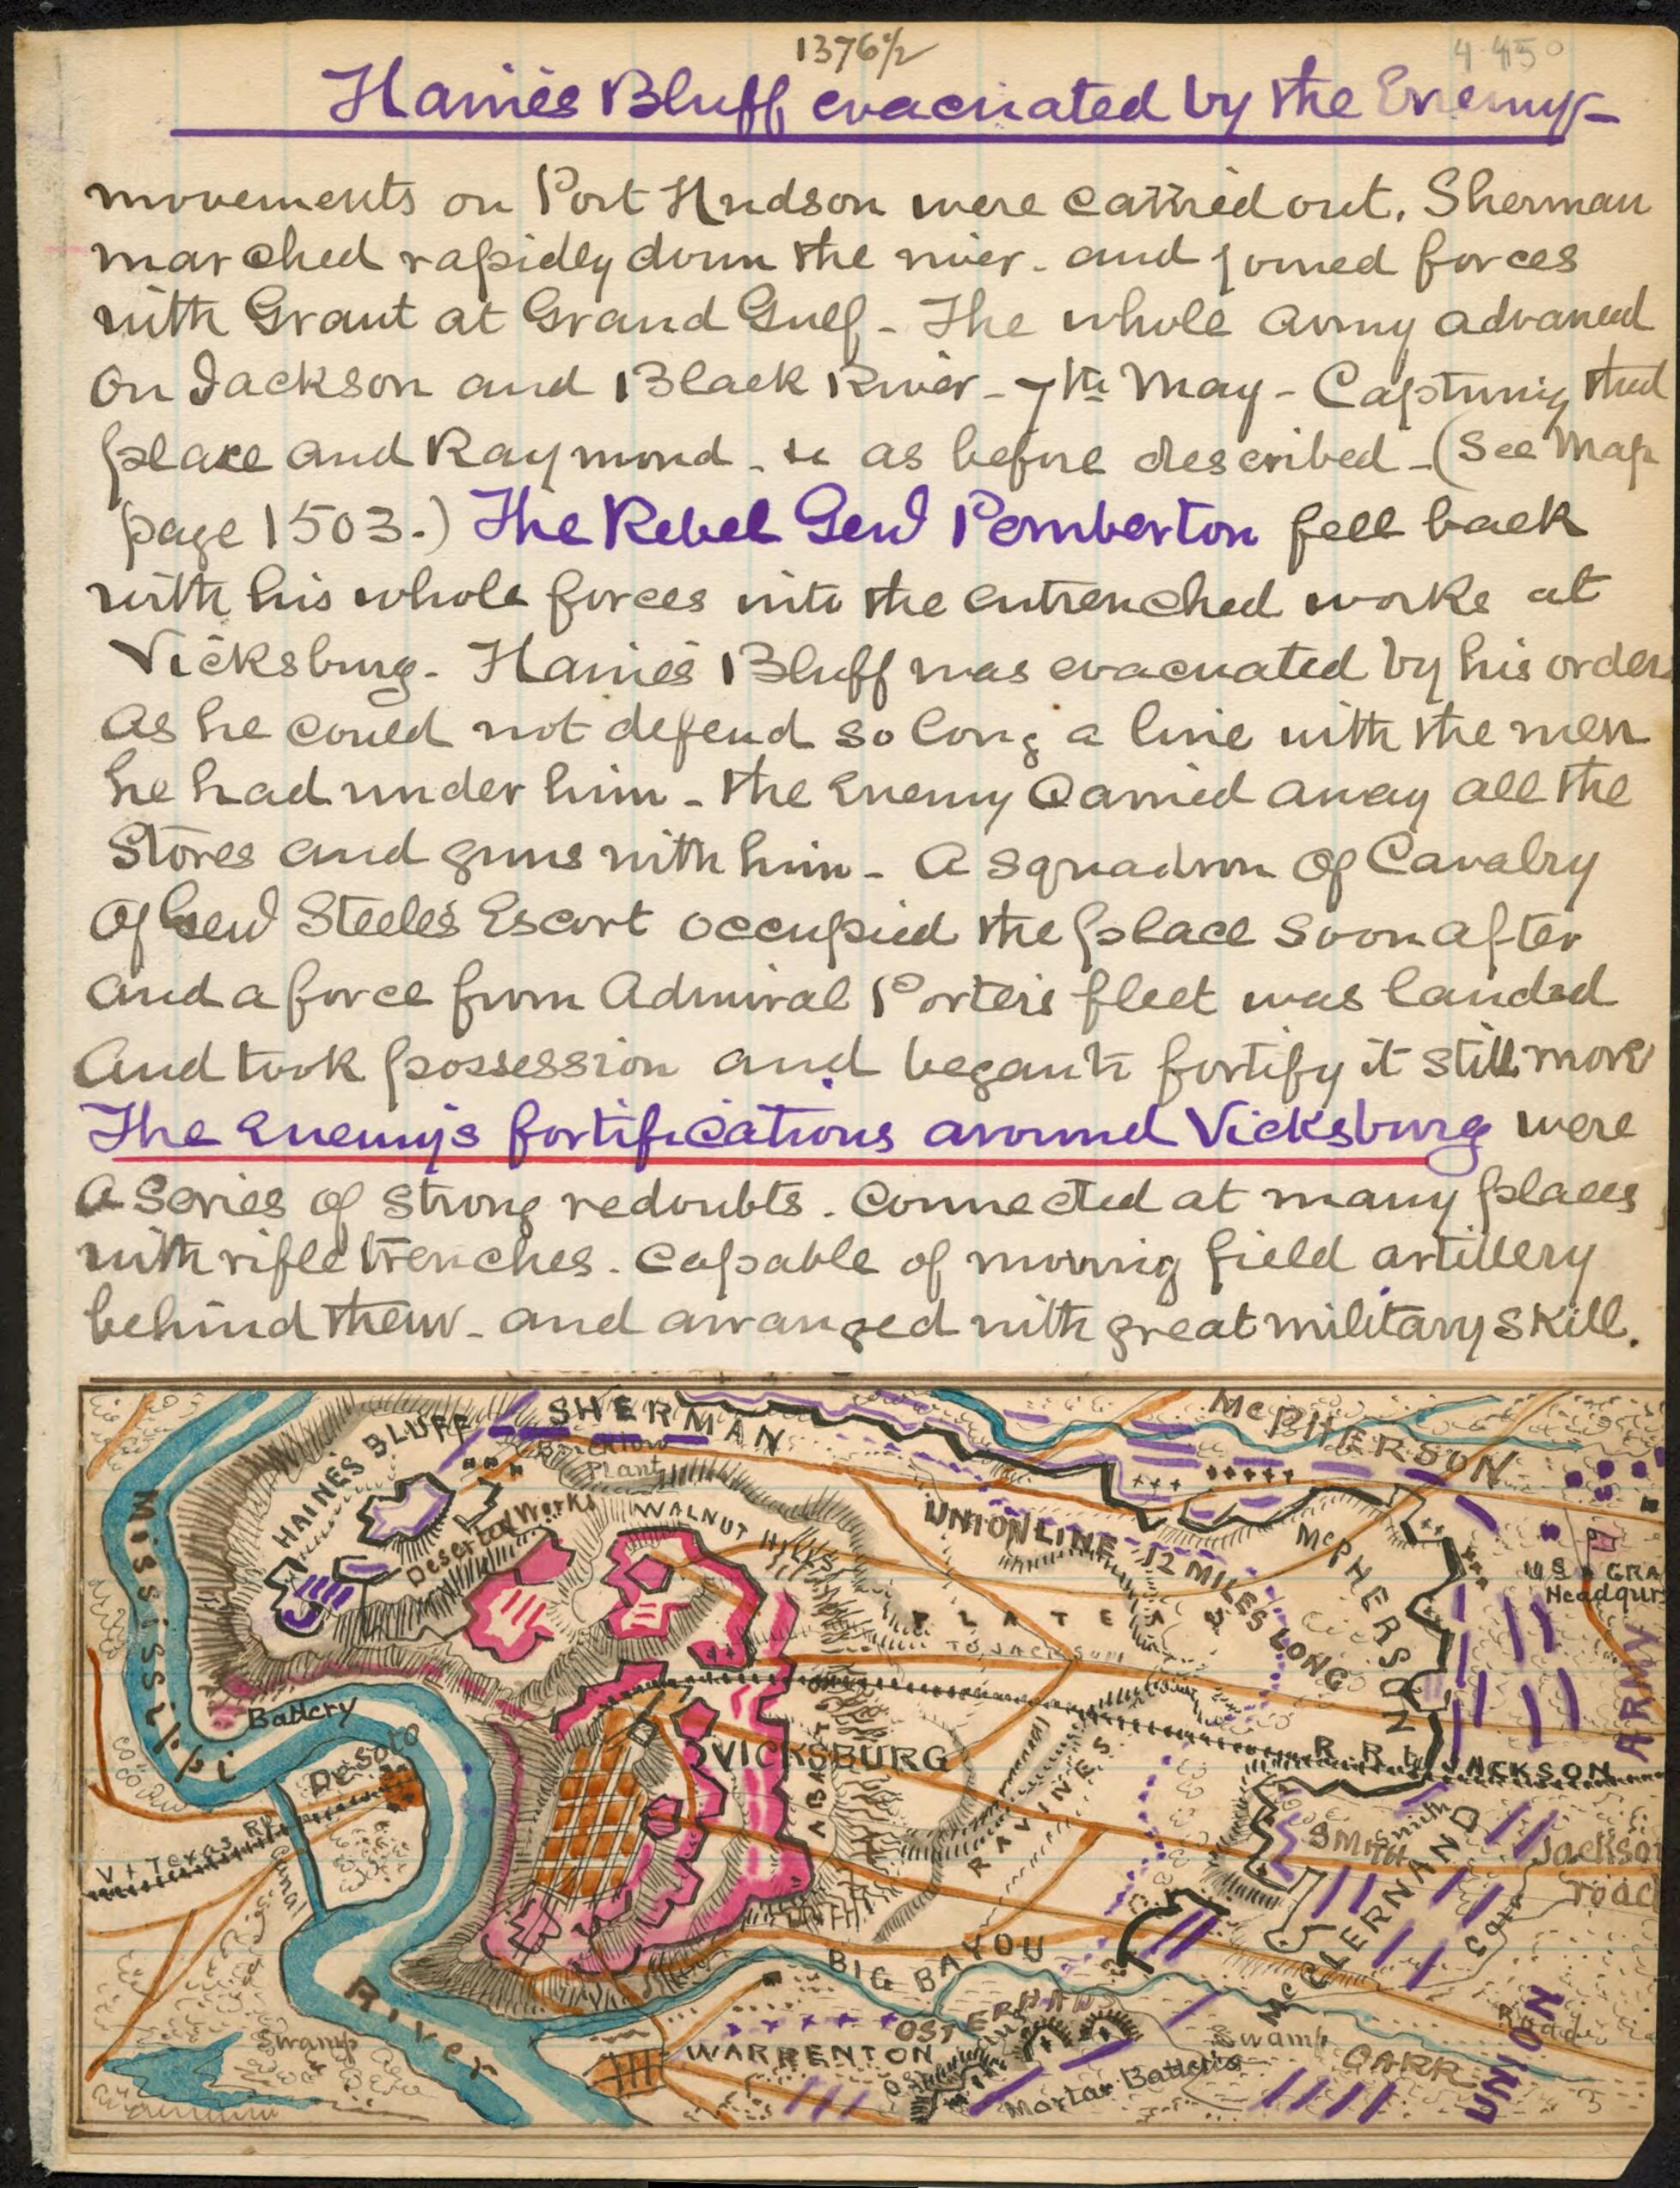 1376½
4 450
Haines Bluff evacuated by the Enemy-
movements on Port Hudson were carried out. Sherman
marched rapidly down the river. and joined forces
with Grant at Grand Gulf - The whole army advanced
on Jackson and Black River - 7th May - Capturing that
place and Raymond. &c as before described - (See Map
page 1503.) The Rebel Genl Pemberton fell back
with his whole forces into the entrenched works at
Vicksburg. Haines Bluff was evacuated by his order
As he could not defend so long a line with the men
he had under him - the Enemy Carried away all the
Stores and guns with him - A Squadron Of Cavalry
Of Genl Steeles Escort occupied the place soon after
And a force from Admiral Porters fleet was landed
And took possession and began to fortify it still more
The Enemy's fortifications around Vicksburg were
A Series of strong redoubts. Connected at many places
with rifle trenches. Capable of moving field artillery
behind them - and arranged with great military skill.
SHERMAN
McPHERSON
HAINES BLUFF
Plant
Deserted Works
WALNUT HILLS
UNION LINE 12 MILES LONG
McPHERSON
U S GRA
Headqurs
PLATEAU
TO JACKSON
Mississippi
Battery
De Soto
VICKSBURG
RAVINES
R R
JACKSON
ARMY
V & Texas RR
Canal
Smith
SMITH
McCLERNAND
Jackson
road
Carr
BIG BAYOU
River
Swamp
OSTERHAUS
WARRENTON
Mortar Batteries
Swamp
CARR
Road
UNION